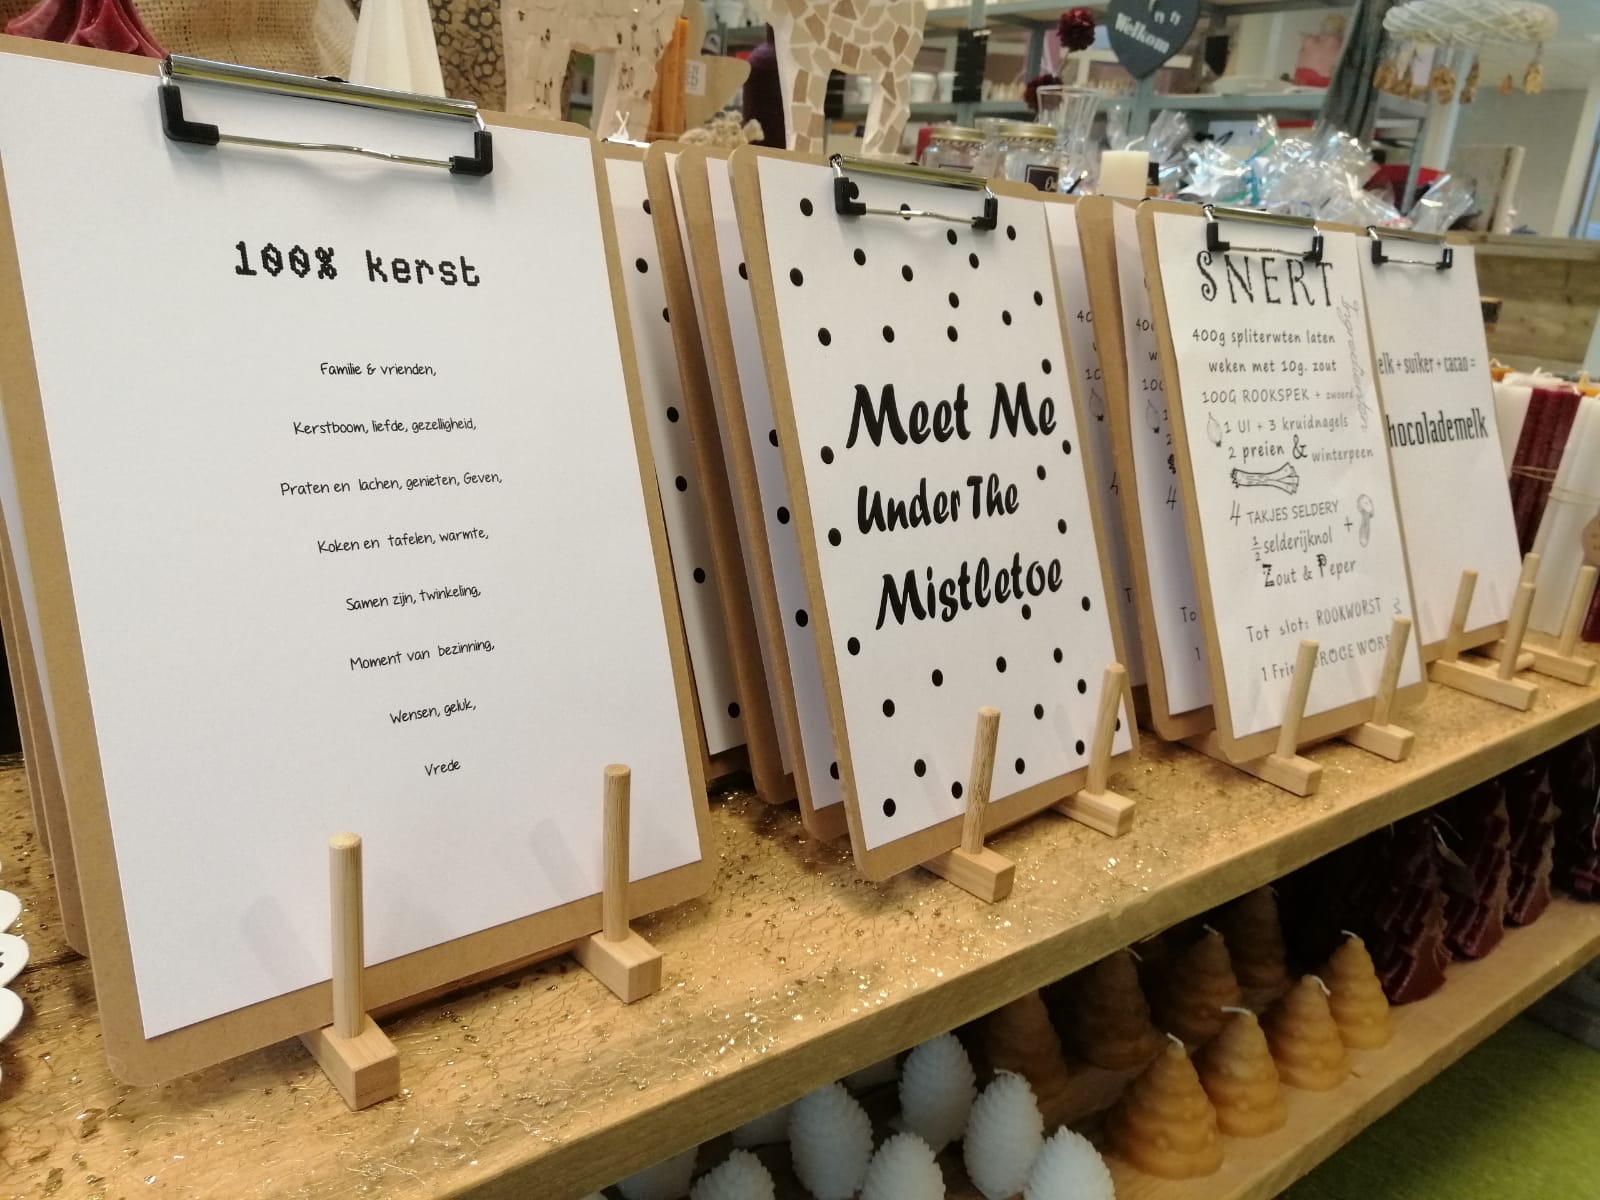 100% kerst
Familie & vrienden,
Kerstboom, liefde, gezelligheid,
Praten en lachen, genieten, Geven,
Koken en tafelen, warmte,
Samen zijn, twinkeling,
Moment van bezinning,
Wensen, geluk,
Vrede
Meet Me
Under The
Mistletoe
SNERT
Ingredienten
400g spliterwten laten
weken met 10g. zout
100G ROOKSPEK + zwoerd
1 UI + 3 kruidnagels
2 preien & winterpeen
4 TAKJES SELDERY
1/2 selderijknol +
Zout & Peper
Tot slot: ROOKWORST
1 Frie ROGE WORS
elk + suiker + cacao =
hocolademelk
Welkom